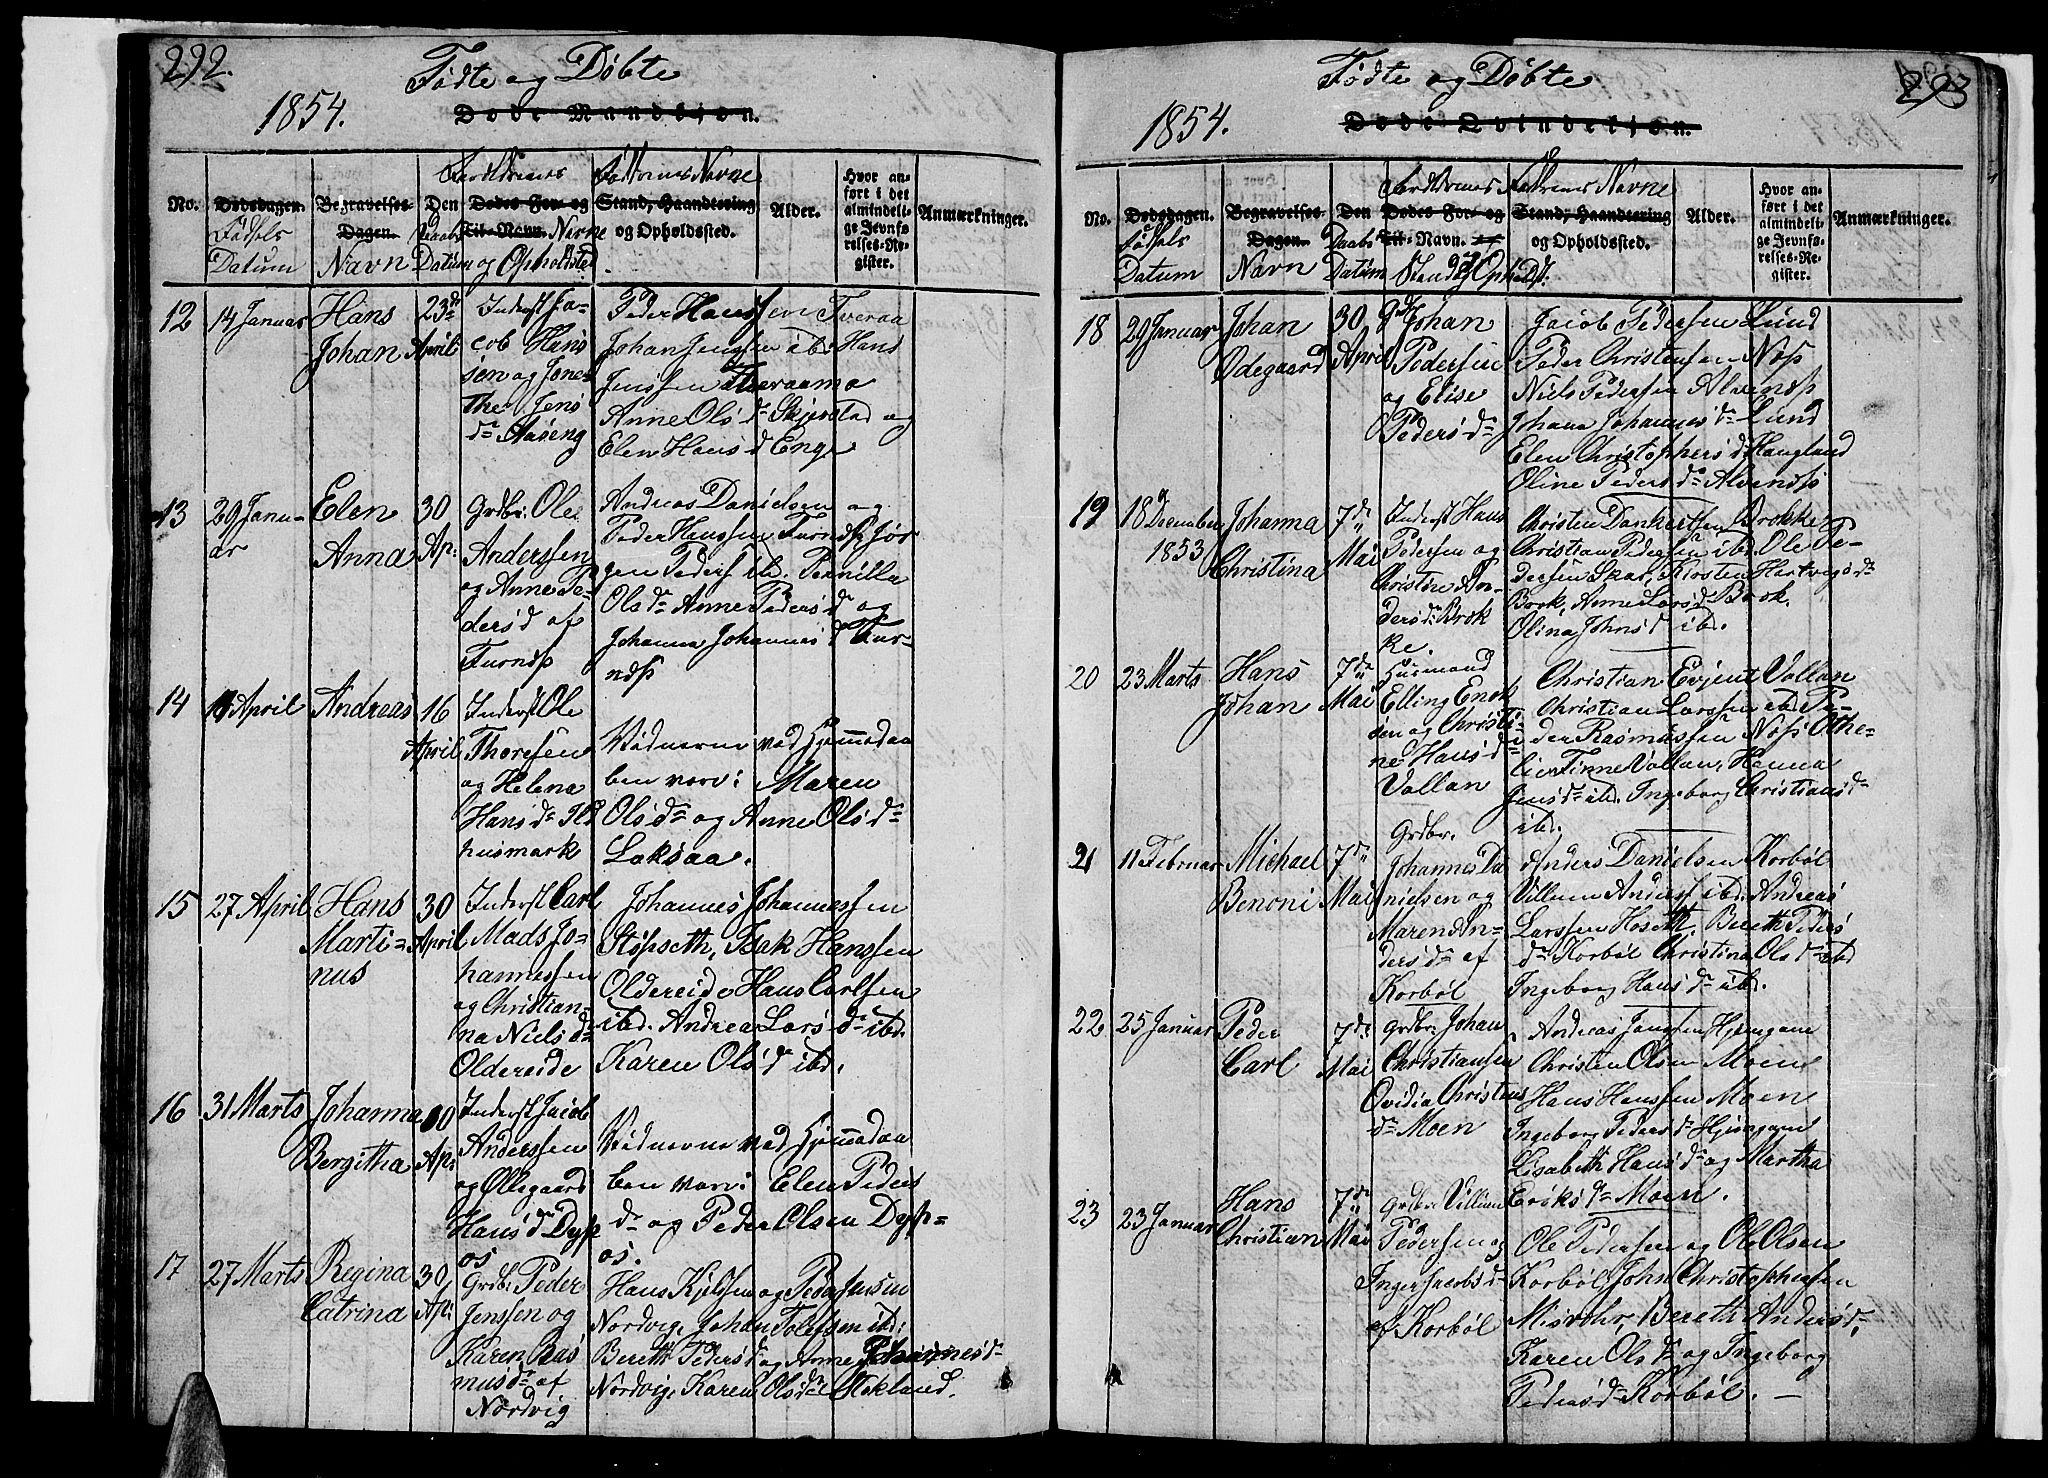 292.
Fødte og Døbte
1854.
Døde Mandkjøn.
Forældrenes
Faddrenes Navne
No.
Dødsdagen.
Begravelses-
Dagen.
Den
Dødes For- og
Til-Navn.
Stand, Haandtering
og Opholdssted.
Alder.
Hvor an-
ført i det
almindeli-
ge Jevnfø-
relses-Re-
gister.
Anmærkninger.
Fødsels
Datum
Navn
Daabs
Datum
Navne
og Opholdsted
12
14 Januar
Hans
Johan
23de
April
Inderst Ja-
cob Hans
sen og Jone-
Thea Jens
dr Aaseng
Peder Hanssen Tveraa
Johan Jenssen ibd. Hans
Jenssen Tveraamo
Anne Olsdr Skjerstad og
Elen Hansd Enge
13
29 Janu-
ar
Elen
Anna
30
Ap:
Grdbr: Ole
Anderssen
og Anne Pe-
dersd af
Turnæs
Andreas Danielsen og
Peder Hanssen Jør
gen Peders ibd. Pernilla
Olsdr Anne Pedersd og
Johanna Johannesd
14
April
Andreas
16
April
Inderst Ole
Thoresen
og Helena
Hansdr
husmark
Vidnerne ved Hjemmedaa
ben vare: Maren
Olsdr og Anne Olsdr
Laksaa.
15
27 April
Hans
Marti-
nus
30
April
Inderst Carl
Mads Jo-
hannessen
og Christian-
na Nielsd
Oldereide
Johannes Johannessen
Støpseth, Isak Hanssen
Oldereide Hans Carlsen
ibd. Andrea Larsdr ibd.
Karen Olsdr ibd.
16
31 Marts
Johanna
Bergitha
30
Ap:
Inderst Jacob
Anderssen
og Ollegaard
Hansdr Dyp
os
Vidnerne ved Hjemmedaa
ben vare: Elen Peders
dr og Peder Olsen Dyp-
os.
17
27 Marts
Regina
Catrina
30
Ap:
Grdbr: Peder
Jenssen og
Karen Ras
musdr af
Nordvig
Hans Kjelssen og Peder Jensen
Nordvig, Johan Tollefsen ibd:
Bereth Pedersd og Anne Johannesdr
Nordvig, Karen Olsdr Hokland.
293
Fødte og Døbte
1854.
Døde Qvindekjøn.
Forældrenes
Faddrenes Navne
No.
Dødsdagen.
Begravelses-
Dagen.
Den
Dødes For- og
Til-Navn.
Stand, Haandtering
og Opholdssted.
Alder.
Hvor an-
ført i det
almindeli-
ge Jevnfø-
relses-Re-
gister.
Anmærkninger.
Fødsels
Datum
Navn
Daabs
Datum
Stand og Opholdst.
18
29 Januar
Johan
Odegaard
30
April
Johan
Pedersen
og Elise
Pedersdr
Jacob Pedersen Lund
Peder Christensen Næs
Niels Pedersen Alvenæs
Johana Johannesdr Lund
Elen Christophersd: Haugland
Oline Pedersdr Alvenæs
19
18 December
1853
Johanna
Christina
7de
Mai
Inderst Hans
Pedersen og
Christine An-
dersdr Brok
ke.
Christen Dankertsen Brokke
Christian Pedersen ibd. Ole Pe-
dersen Skar, Kirsten Hartvigsdr
Brok, Anne Larsd Brok.
Olina Johnsd ibd.
20
23 Marts
Hans
Johan
7de
Mai
Husmand
Elling Enok
sen og Christi
ne Hansd
Vallan
Christian Evjent Vallan
Christian Larssen ibd. Pe-
der Rasmussen Næs Othe-
lie Finne Vallan, Hanna
Jensdr ibd. Ingeborg Christiansdr
ibd.
21
11 Februar
Michael
Benoni
7de
Mai
Grdbr.
Johannes Da
nielsen og
Maren An-
dersdr af
Korbøl
Anders Danielsen Korbøl
Villum Anders ibd. Andreas
Larssen Hoseth, Bereth Peders
dr Korbøl Christina Olsdr ibd
Ingeborg Hansdr ibd.
22
25 Januar
Peder
Carl
7de
Mai
Grdbr: Johan
Christiansen
Ovidia Christens
dr Moen
Andreas Jenssen Hjemgam
Christen Olsen Moen
Hans Hanssen Moen
Ingeborg Pedersdr Hjemgam
Lisabeth Hansdr og Martha
Eriksdr Moen.
23
23 Januar
Hans
Christian
7de
Mai
Grdbr: Villum
Pedersen og
Inger Jacobsd
af Korbøl
Ole Pedersen og Ole Olsen
Korbøl John Christophersen
Misvær, Bereth Andersd,
Karen Olsdr og Ingeborg
Pedersd Korbøl. —